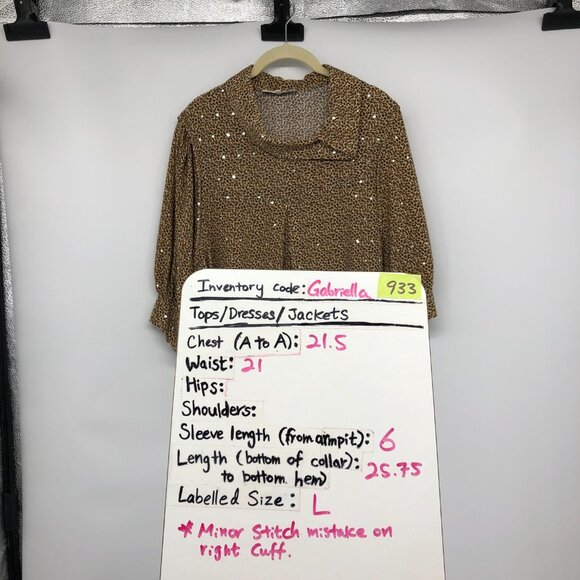 Inventory code: Gabriella 933
Tops/Dresses/Jackets
Chest (A to A): 21.5
Waist: 21
Hips:
Shoulders:
Sleeve length (from armpit): 6
Length (bottom of collar): 25.75
to bottom hem)
Labelled Size: L
* Minor Stitch mistake on
right Cuff.